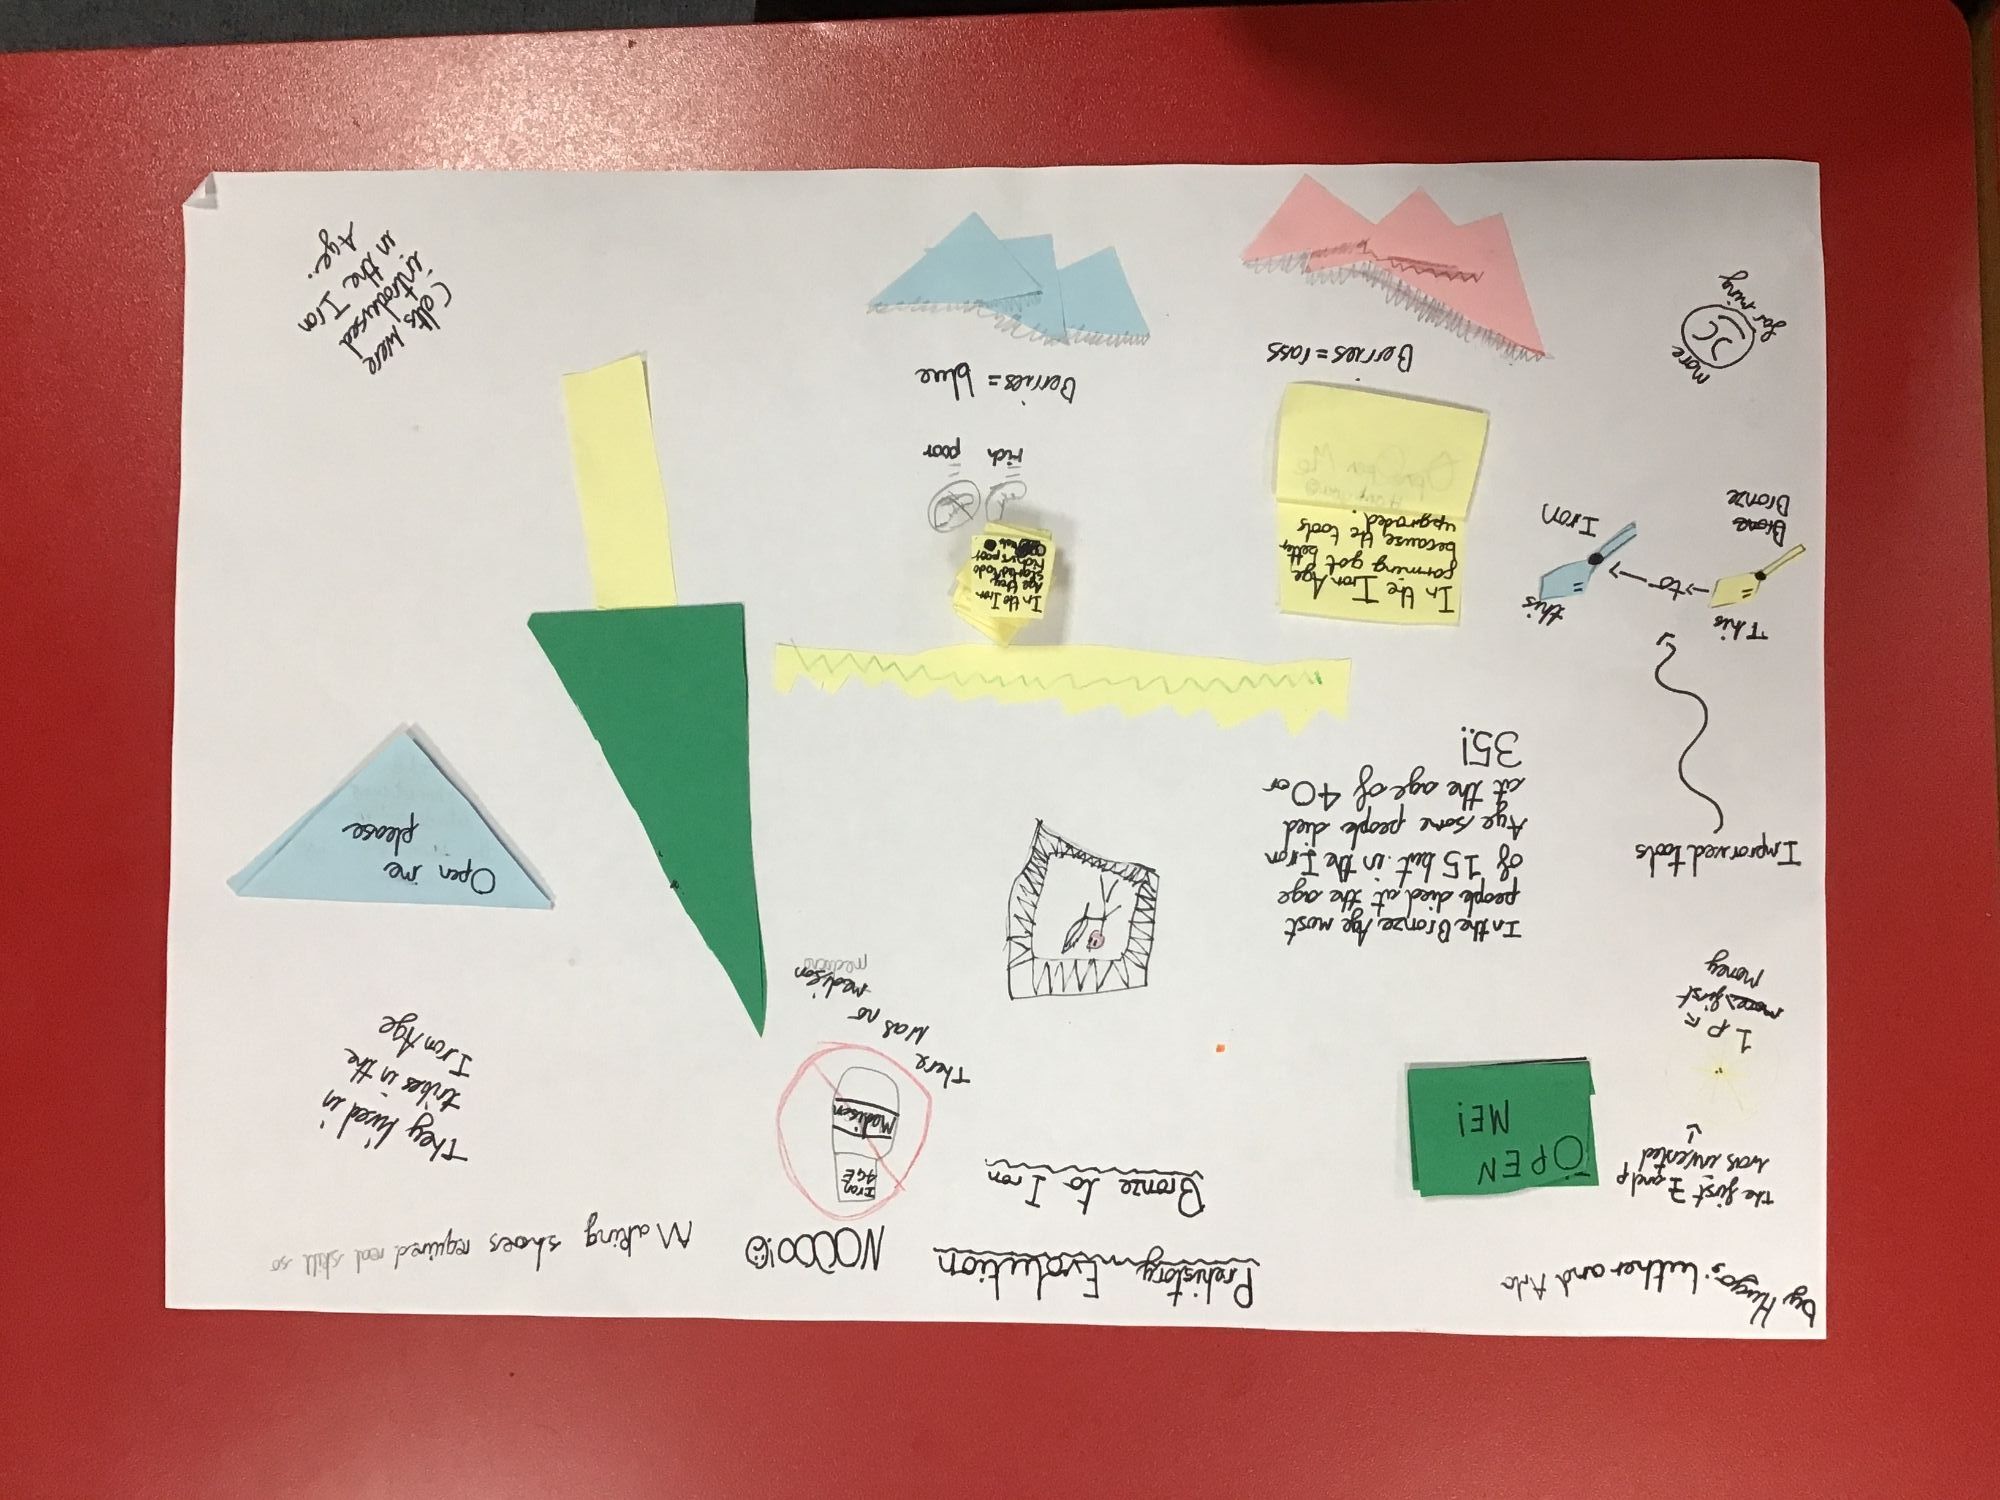 by Hugo, Luther and Arlo
Prehistory Evolution
Bronze to Iron
NOOOO!
Making shoes required real skill so
the first 7 and p
was invented
1 P =
first
Money
OPEN
ME!
Iron
AGE
Medison
There was no
medison
They lived in
tribes in the
Iron Age
Improrved tools
This
to
this
Bronze
Iron
In the Bronze Age most
people died at the age
of 15 but in the Iron
Age some people died
at the age of 40 or
35!
Open me
please
In the Iron Age
farming got better
because the tools
upgraded.
Open Me
In the Iron
Age they
started to do
rich vs poor
rich
poor
Berries = rass
Berries = blue
more
farming
Celts were
introdused
in the Iron
Age.